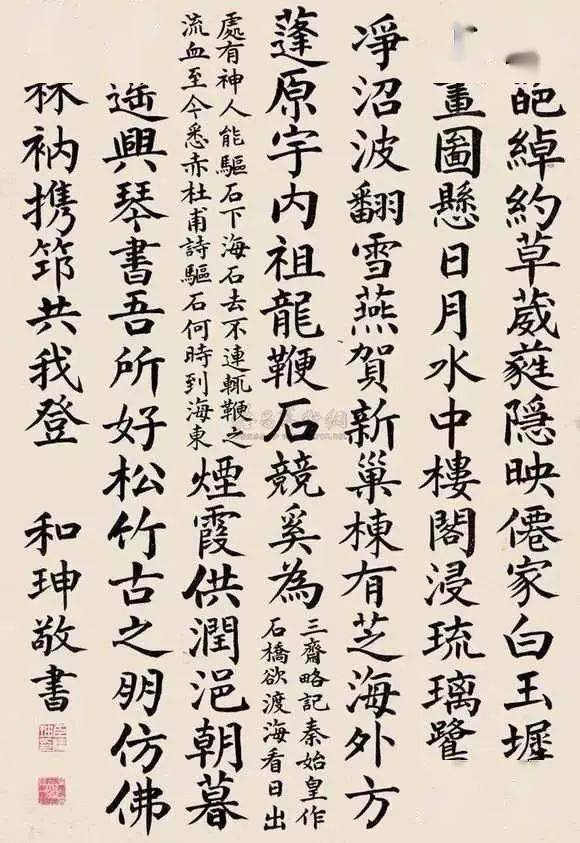 葩綽約草葳蕤隱映僊家白玉墀
畫圖懸日月水中樓閣浸琉璃
凈沼波翻雪燕賀新巢棟有芝海外方
蓬原宇内祖龍鞭石競奚為
三齋略記秦始皇作
石橋欲渡海看日出
處有神人能驅石下海石去不連輒鞭之
流血至今悉赤杜甫詩驅石何時到海東
煙霞供潤浥朝暮
遙興琴書吾所好松竹古之朋仿佛
林衲携筇共我登
和珅敬書